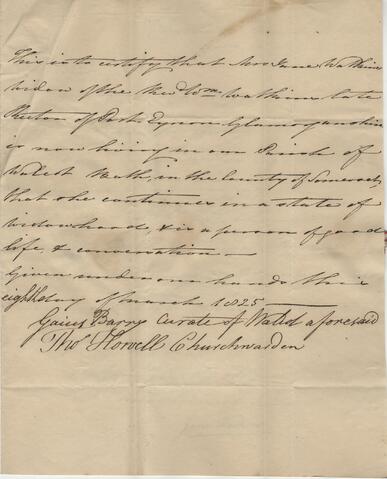 This is to certify that Mrs Jane Watkins
widow of the Revd Wm Watkins late
Rector of Port Eynon Glamorganshire
is now living in our Parish of
Walcot Bath, in the County of Somerset,
that she continues in a state of
widowhood, & is a person of good
life, & conversation—
Given under our hands this
eighth day of March 1825—
Gaius Barry Curate of Walcot aforesaid
Thos Howell Churchwarden